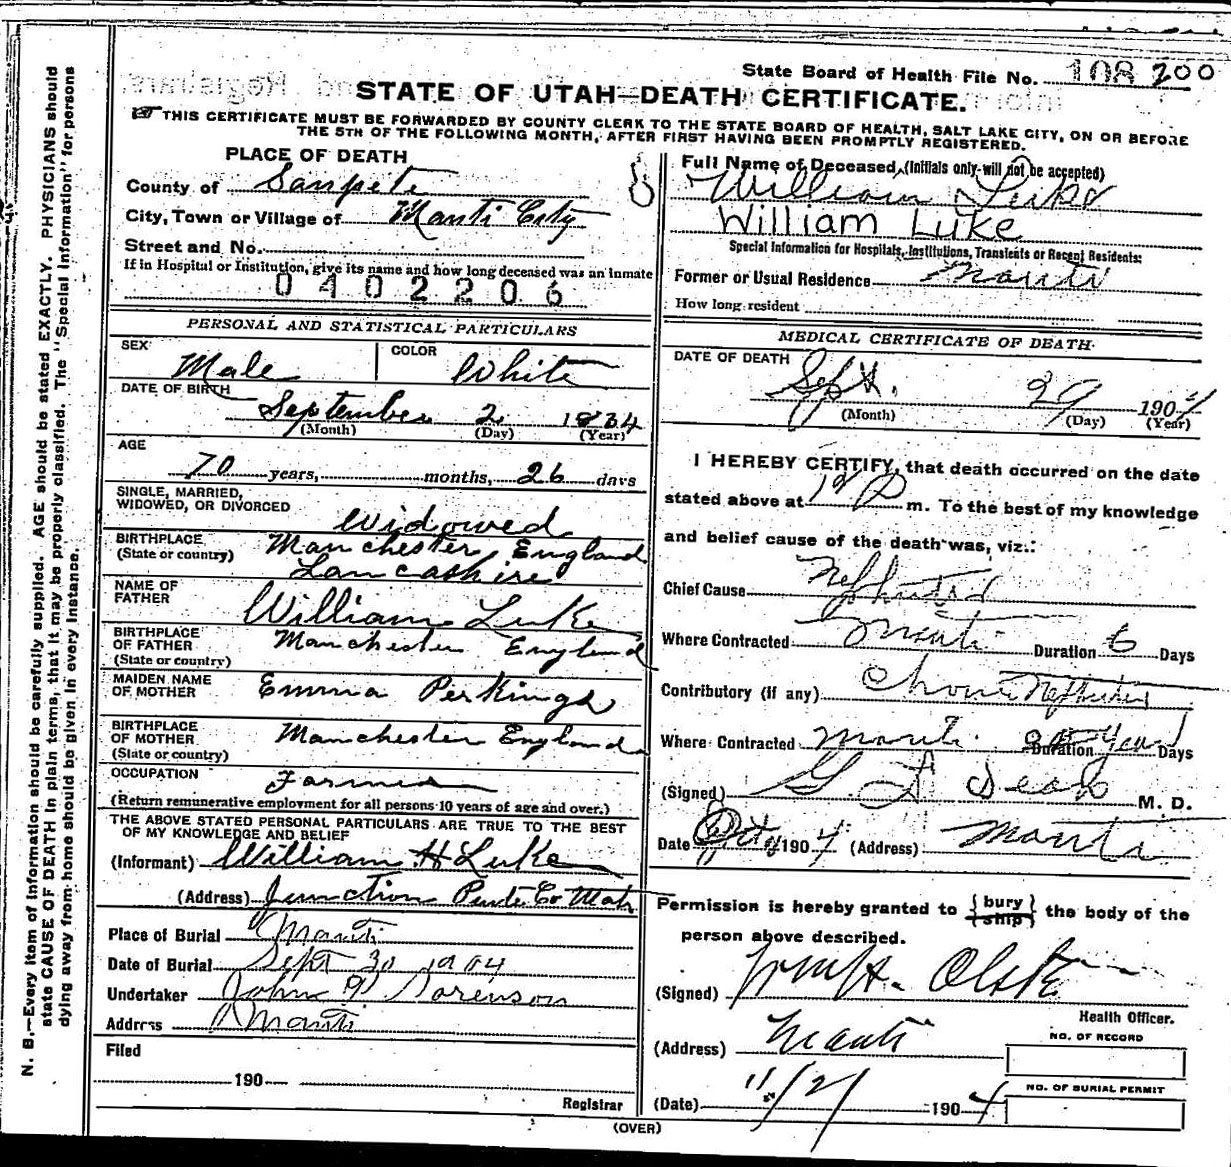 State Board of Health File No. 108 200
STATE OF UTAH—DEATH CERTIFICATE.
THIS CERTIFICATE MUST BE FORWARDED BY COUNTY CLERK TO THE STATE BOARD OF HEALTH, SALT LAKE CITY, ON OR BEFORE
THE 5TH OF THE FOLLOWING MONTH, AFTER FIRST HAVING BEEN PROMPTLY REGISTERED.
PLACE OF DEATH
County of Sanpete
City, Town or Village of Manti City
Street and No.
If in Hospital or Institution, give its name and how long deceased was an inmate
0402206
PERSONAL AND STATISTICAL PARTICULARS
SEX Male COLOR White
DATE OF BIRTH
September 2 1834
(Month) (Day) (Year)
AGE
70 years, months, 26 days
SINGLE, MARRIED,
WIDOWED, OR DIVORCED
Widowed
BIRTHPLACE Manchester, England
(State or country) Lancashire
NAME OF
FATHER William Luke
BIRTHPLACE
OF FATHER Manchester England
(State or country)
MAIDEN NAME
OF MOTHER Emma Perkings
BIRTHPLACE
OF MOTHER Manchester England
(State or country)
OCCUPATION Farmer
(Return remunerative employment for all persons 10 years of age and over.)
THE ABOVE STATED PERSONAL PARTICULARS ARE TRUE TO THE BEST
OF MY KNOWLEDGE AND BELIEF
(Informant) William H Luke
(Address) Junction Co Utah
Place of Burial Manti
Date of Burial Sept 30 1904
Undertaker John P Sorenson
Address Manti
Filed
190
Registrar
Full Name of Deceased (Initials only will not be accepted)
William Luke
William Luke
Special Information for Hospitals, Institutions, Transients or Recent Residents:
Former or Usual Residence Manti
How long resident
MEDICAL CERTIFICATE OF DEATH
DATE OF DEATH
Sept. 29 1904
(Month) (Day) (Year)
I HEREBY CERTIFY, that death occurred on the date
stated above at 12 P m. To the best of my knowledge
and belief cause of the death was, viz.:
Chief Cause Nephritis
Where Contracted Manti Duration 6 Days
Contributory (if any) Chronic Nephritis
Where Contracted Manti Duration Years Days
(Signed) G. M. D.
Date Oct 1904 (Address) Manti
Permission is hereby granted to {bury ship} the body of the
person above described.
(Signed) Wm H.
Health Officer.
(Address) Manti
NO. OF RECORD
(Date) 11/2/ 1904
NO. OF BURIAL PERMIT
(OVER)
N. B.—Every item of information should be carefully supplied. AGE should be stated EXACTLY. PHYSICIANS should
state CAUSE OF DEATH in plain terms, that it may be properly classified. The "Special Information" for persons
dying away from home should be given in every instance.